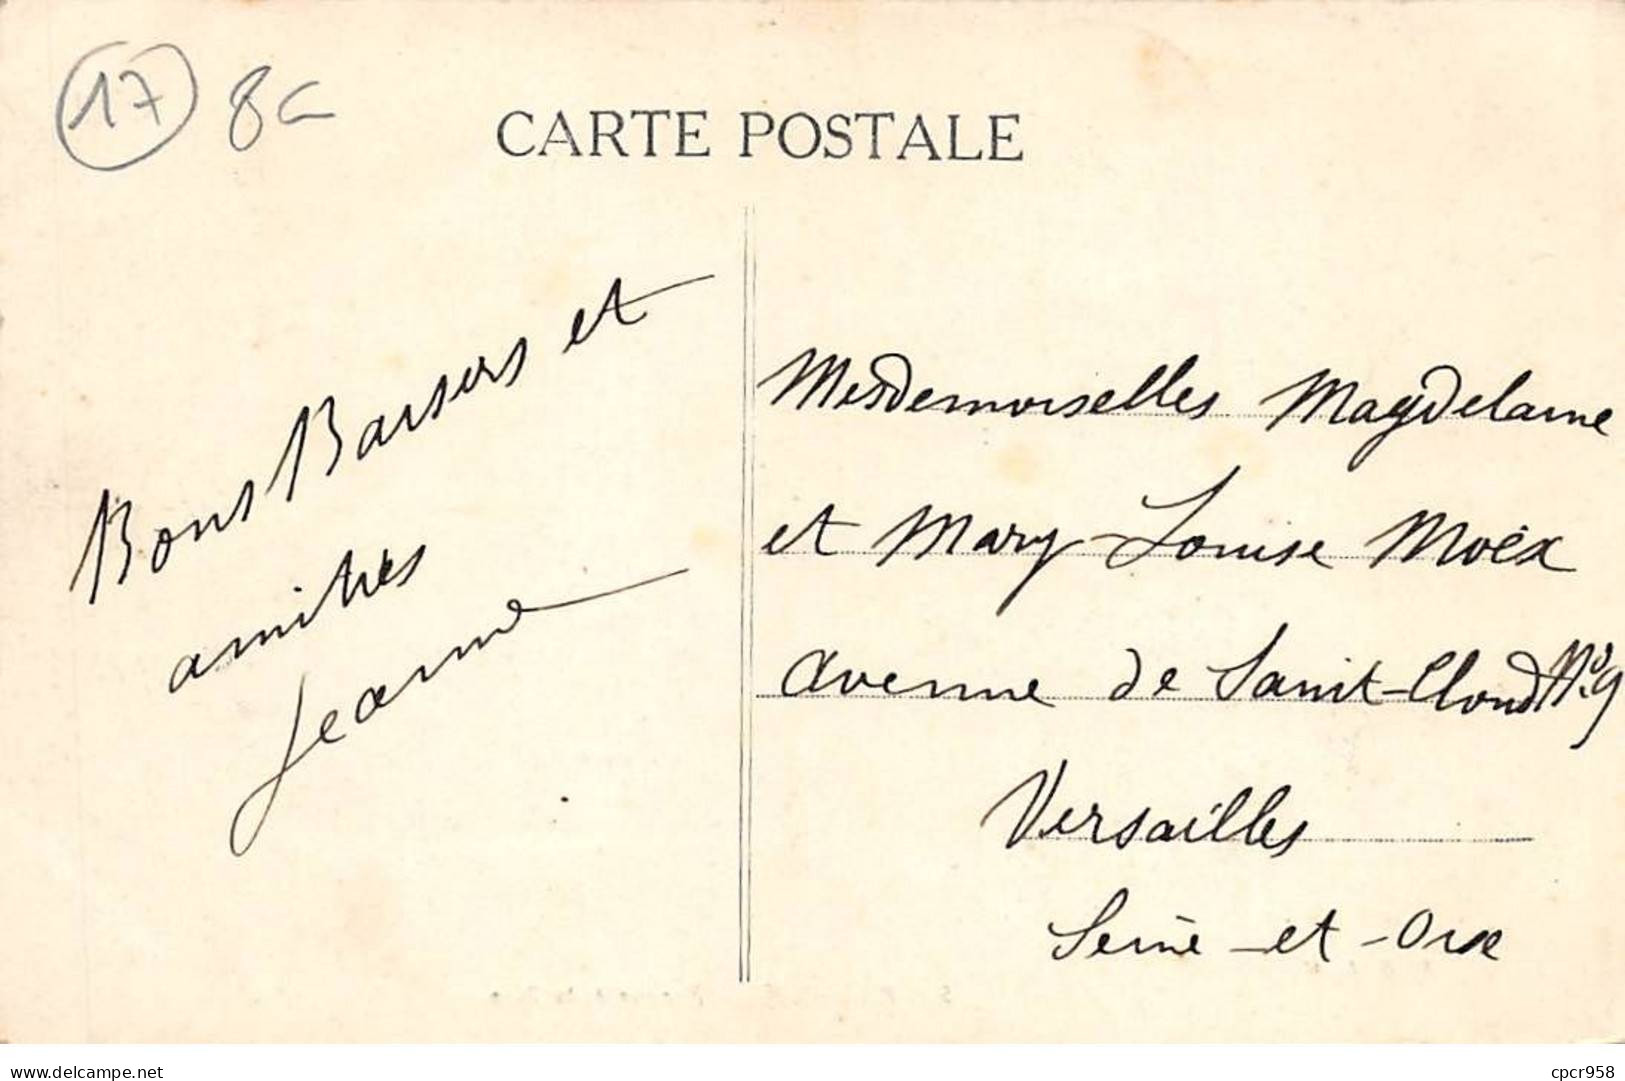 17 8c
CARTE POSTALE
Bons Baisers et
amitiés
Jeanne
Mesdemoiselles Magdelaine
et Mary-Louise Moëx
Avenue de Saint-Cloud N°.9
Versailles
Seine-et-Oise
www.delcampe.net
cpcr958